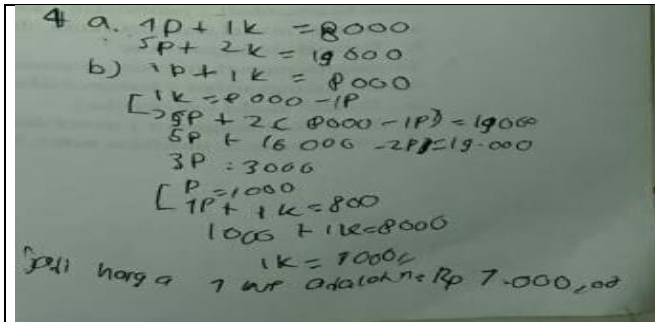 4 a. 1P + 1k = 8000
5P + 2k = 19000
b) 1P + 1k = 8000
1k = 8000 - 1P
5P + 2( 8000 - 1P) = 19000
5P + 16000 - 2P = 19.000
3P = 3000
P = 1000
1P + 1k = 800
1000 + 1k = 8000
1k = 7000
Jadi harga 1 adalah = Rp 7.000,00